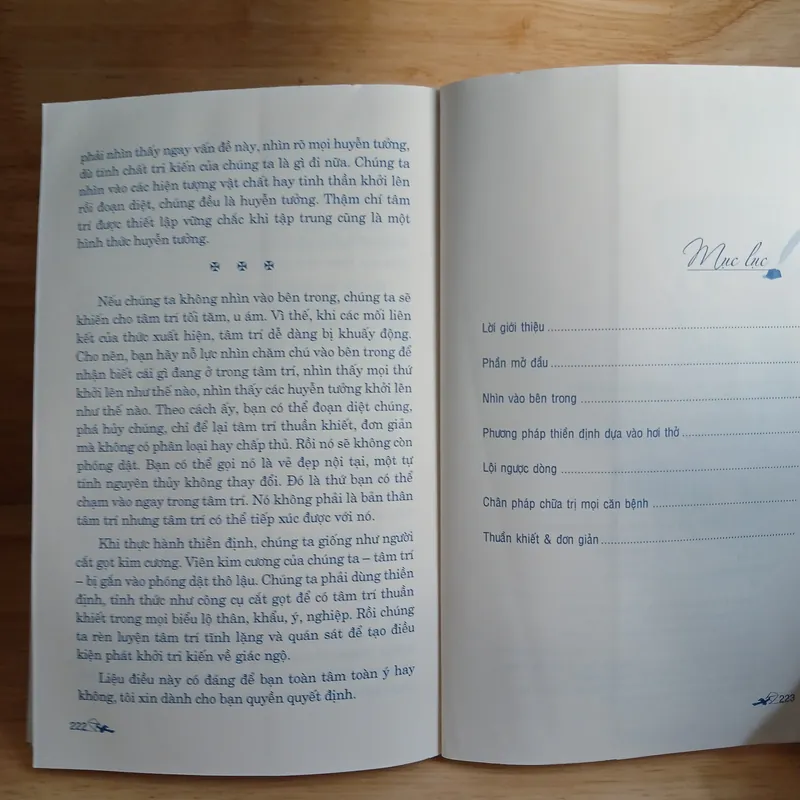 phải nhìn thấy ngay vấn đề này, nhìn rõ mọi huyễn tưởng,
dù tính chất tri kiến của chúng ta là gì đi nữa. Chúng ta
nhìn vào các hiện tượng vật chất hay tinh thần khởi lên
rồi đoạn diệt, chúng đều là huyễn tưởng. Thậm chí tâm
trí được thiết lập vững chắc khi tập trung cũng là một
hình thức huyễn tưởng.
✠ ✠ ✠
Nếu chúng ta không nhìn vào bên trong, chúng ta sẽ
khiến cho tâm trí tối tăm, u ám. Vì thế, khi các mối liên
kết của thức xuất hiện, tâm trí dễ dàng bị khuấy động.
Cho nên, bạn hãy nỗ lực nhìn chăm chú vào bên trong để
nhận biết cái gì đang ở trong tâm trí, nhìn thấy mọi thứ
khởi lên như thế nào, nhìn thấy các huyễn tưởng khởi lên
như thế nào. Theo cách ấy, bạn có thể đoạn diệt chúng,
phá hủy chúng, chỉ để lại tâm trí thuần khiết, đơn giản
mà không có phân loại hay chấp thủ. Rồi nó sẽ không còn
phóng dật. Bạn có thể gọi nó là vẻ đẹp nội tại, một tự
tính nguyên thủy không thay đổi. Đó là thứ bạn có thể
chạm vào ngay trong tâm trí. Nó không phải là bản thân
tâm trí nhưng tâm trí có thể tiếp xúc được với nó.
Khi thực hành thiền định, chúng ta giống như người
cắt gọt kim cương. Viên kim cương của chúng ta – tâm trí
– bị gắn vào phóng dật thô lậu. Chúng ta phải dùng thiền
định, tỉnh thức như công cụ cắt gọt để có tâm trí thuần
khiết trong mọi biểu lộ thân, khẩu, ý, nghiệp. Rồi chúng
ta rèn luyện tâm trí tĩnh lặng và quán sát để tạo điều
kiện phát khởi tri kiến về giác ngộ.
Liệu điều này có đáng để bạn toàn tâm toàn ý hay
không, tôi xin dành cho bạn quyền quyết định.
222
Mục lục
Lời giới thiệu
Phần mở đầu
Nhìn vào bên trong
Phương pháp thiền định dựa vào hơi thở
Lội ngược dòng
Chân pháp chữa trị mọi căn bệnh
Thuần khiết & đơn giản
223